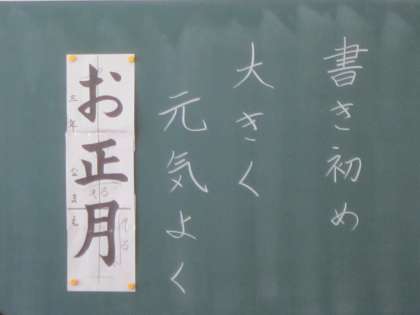 書き初め
大きく
元気よく
お正月
三年 なまえ